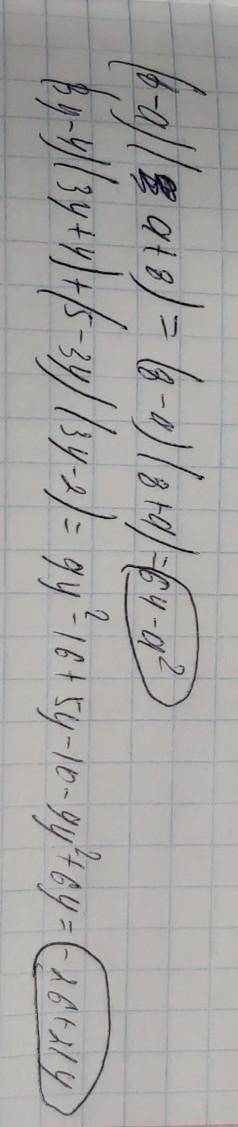 (8-a)(a+8) = (8-a)(8+a) = 64-a²
(3y-4)(3y+4)+(5-3y)(3y-2) = 9y²-16+15y-10-9y²+6y = -26+21y